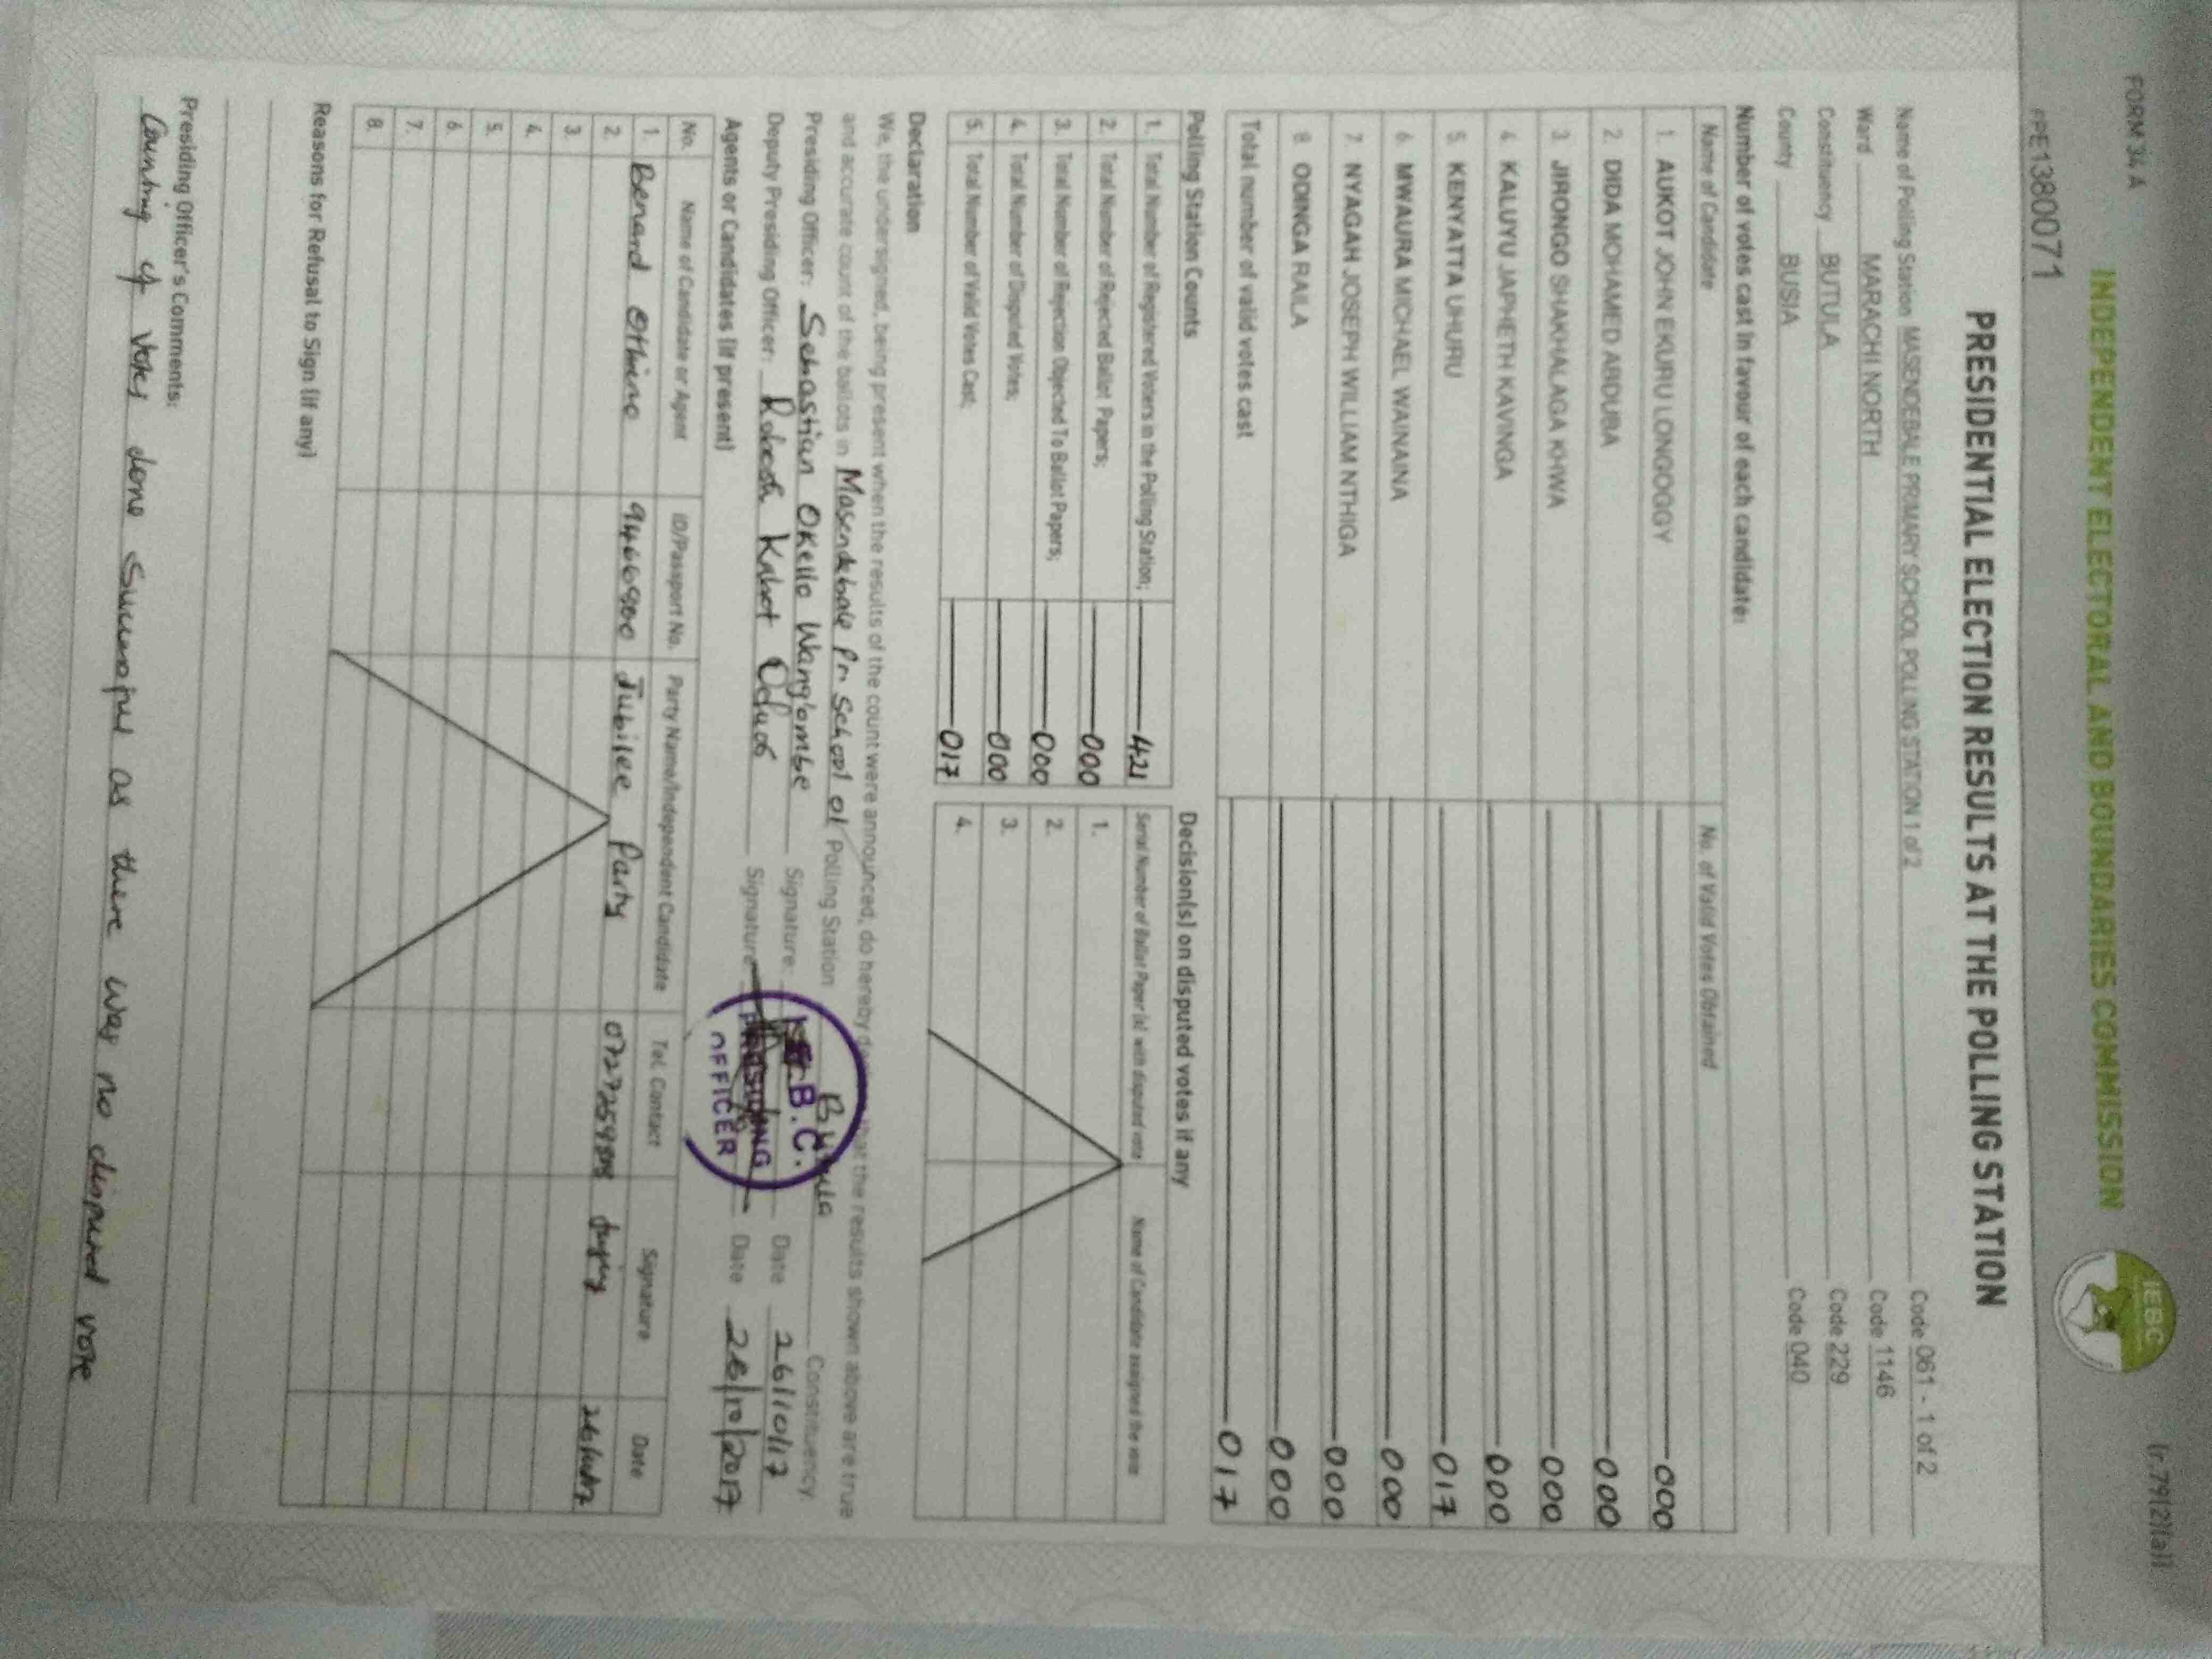 FORM 34 A
(r.79(2)(a))
INDEPENDENT ELECTORAL AND BOUNDARIES COMMISSION
IEBC
PE1380071
PRESIDENTIAL ELECTION RESULTS AT THE POLLING STATION
Name of Polling Station MASENDEBALE PRIMARY SCHOOL POLLING STATION 1 of 2 Code 061 - 1 of 2
Ward MARACHI NORTH Code 1146
Constituency BUTULA Code 229
County BUSIA Code 040
Number of votes cast in favour of each candidate:
Name of Candidate No. of Valid Votes Obtained
1. AUKOT JOHN EKURU LONGOGGY 000
2. DIDA MOHAMED ABDUBA 000
3. JIRONGO SHAKHALAGA KHWA 000
4. KALUYU JAPHETH KAVINGA 000
5. KENYATTA UHURU 017
6. MWAURA MICHAEL WAINAINA 000
7. NYAGAH JOSEPH WILLIAM NTHIGA 000
8. ODINGA RAILA 000
Total number of valid votes cast 017
Polling Station Counts
1. Total Number of Registered Voters in the Polling Station; 421
2. Total Number of Rejected Ballot Papers; 000
3. Total Number of Rejection Objected To Ballot Papers; 000
4. Total Number of Disputed Votes; 000
5. Total Number of Valid Votes Cast; 017
Decision(s) on disputed votes if any
Serial Number of Ballot Paper (s) with disputed vote Name of Candidate assigned the vote
1.
2.
3.
4.
Declaration
We, the undersigned, being present when the results of the count were announced, do hereby that the results shown above are true
and accurate count of the ballots in Masendebale Pri School 01 Polling Station Butula Constituency.
Presiding Officer: Sebastian Okello Wang'ombe Signature: Date 26/10/17
Deputy Presiding Officer: Signature: Date 26/10/2017
B.C.
PRESIDING
OFFICER
Agents or Candidates (if present)
No. Name of Candidate or Agent ID/Passport No. Party Name/Independent Candidate Tel. Contact Signature Date
1. Benard Othieno 9466900 Jubilee Party
2.
3.
4.
5.
6.
7.
8.
Reasons for Refusal to Sign (if any)
Presiding Officer's Comments:
Counting of votes done Successful as there was no disputed vote